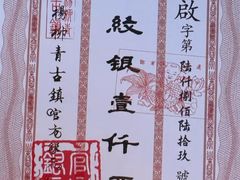 啟字第陸仟捌佰陸拾玖號
紋銀壹仟
楊柳青古鎮官方銀